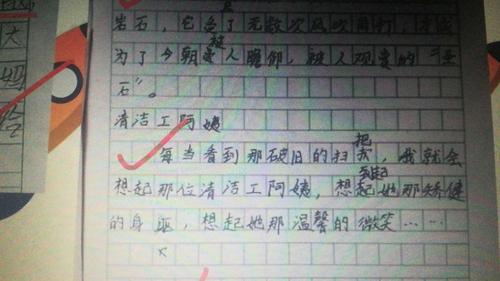 岩石，它经了无数次风吹雨打，才成
为了今朝被人瞻仰，被人观赏的"怪
石"。
清洁工阿姨
每当看到那破旧的扫把，我就会
想起那位清洁工阿姨，想起她那矫健
的身，想起她那温馨的微笑……